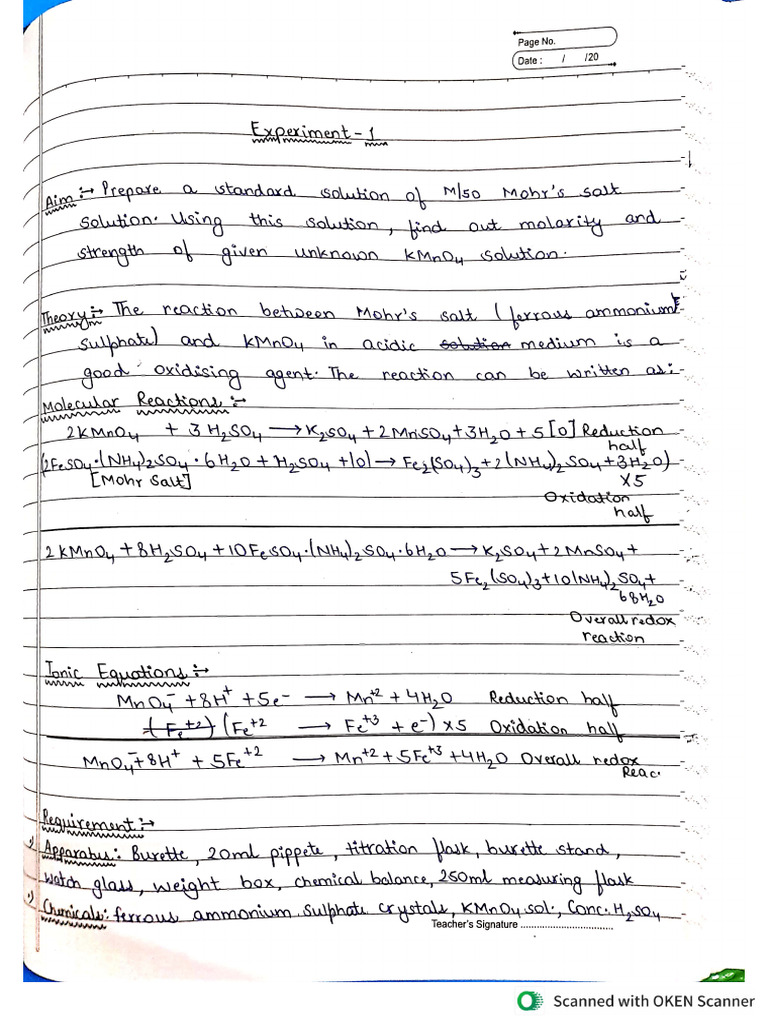 Page No.
Date : / /20
Experiment - 1
Aim :→ Prepare a standard solution of M/50 Mohr's salt
solution. Using this solution, find out molarity and
strength of given unknown KMnO4 solution.
Theory :→ The reaction between Mohr's salt (ferrous ammonium
sulphate) and KMnO4 in acidic solution medium is a
good oxidising agent. The reaction can be written as:
Molecular Reactions :→
2KMnO4 + 3H2SO4 → K2SO4 + 2MnSO4 + 3H2O + 5[O] Reduction
half
(2FeSO4·(NH4)2SO4·6H2O + H2SO4 + [O] → Fe2(SO4)3 + 2(NH4)2SO4 + 3H2O)
[Mohr Salt] X5
Oxidation
half
2KMnO4 + 8H2SO4 + 10FeSO4·(NH4)2SO4·6H2O → K2SO4 + 2MnSO4 +
5Fe2(SO4)3 + 10(NH4)2SO4 +
68H2O
Overall redox
reaction
Ionic Equations :→
MnO4⁻ + 8H⁺ + 5e⁻ → Mn⁺² + 4H2O Reduction half
(Fe⁺²) (Fe⁺² → Fe⁺³ + e⁻) x5 Oxidation half
MnO4⁻ + 8H⁺ + 5Fe⁺² → Mn⁺² + 5Fe⁺³ + 4H2O Overall redox
Reac.
Requirement :→
Apparatus : Burette, 20ml pippete, titration flask, burette stand,
watch glass, weight box, chemical balance, 250ml measuring flask
Chemicals : ferrous ammonium sulphate crystals, KMnO4 sol., Conc. H2SO4
Teacher's Signature ................................
Scanned with OKEN Scanner